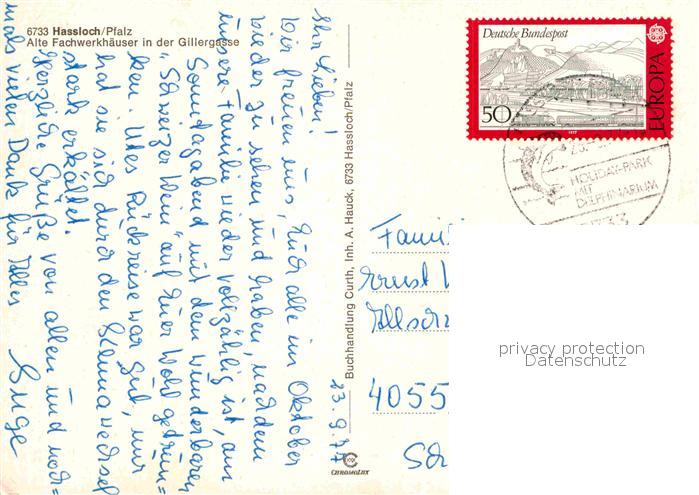 6733 Hassloch/Pfalz
Alte Fachwerkhäuser in der Gillergasse
Ihr Lieben!
Wir freuen uns, Euch alle im Oktober
wieder zu sehen und haben, nachdem
unsere Familie wieder vollzählig ist, am
Sonntagabend mit dem wunderbaren
"Schweizer Wein" auf Euer Wohl getrun=
ken. Utes Rückreise war gut, nur
hat sie sich durch den Klimawechsel
stark erkältet.
Herzliche Grüße von allen und noch=
mals vielen Dank für Alles
Inge
23.9.77
Buchhandlung Curth, Inh. A. Hauck, 6733 Hassloch/Pfalz
CHROMOLUX
Deutsche Bundespost
50
EUROPA
CEPT
1977
HOLIDAY-PARK
MIT
DELPHINARIUM
6733
Famil
Ernst
Allsch
4055
privacy protection
Datenschutz